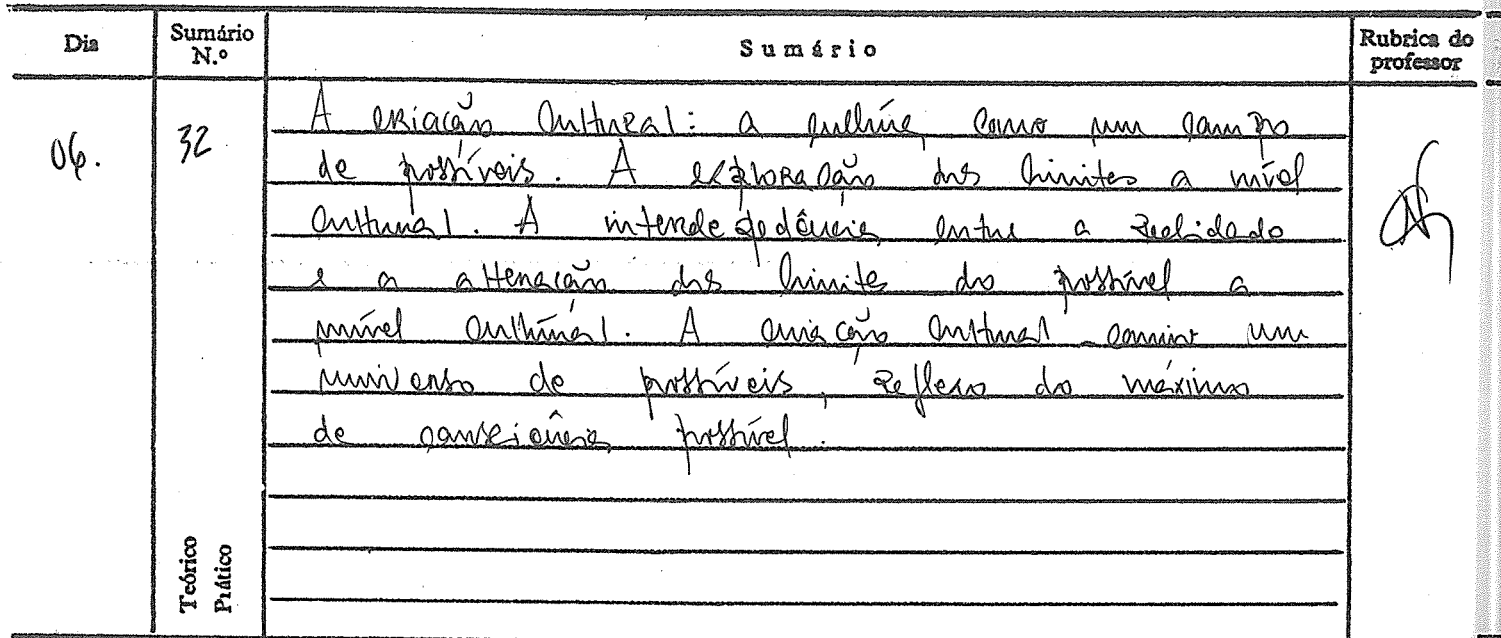 Dia
Sumário N.º
Sumário
Rubrica do professor
06.
32
A criação cultural: a cultura como um campo
de possíveis. A exploração dos limites a nível
cultural. A interdepedência entre a realidade
e a alteração dos limites do possível a
nível cultural. A criação cultural como um
universo de possíveis, reflexo do máximo
de consciência possível.
Teórico
Prático